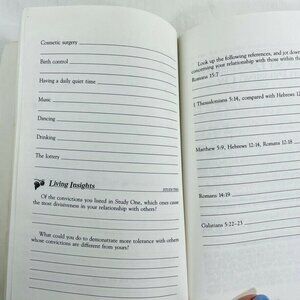 Cosmetic surgery
Birth control
Having a daily quiet time
Music
Dancing
Drinking
The lottery
Living Insights
STUDY TWO
Of the convictions you listed in Study One, which ones cause
the most divisiveness in your relationship with others?
What could you do to demonstrate more tolerance with others
whose convictions are different from yours?
Look up the following references, and jot down
concerning your relationship with those within the
Romans 15:7
1 Thessalonians 5:14, compared with Hebrews 12:
Matthew 5:9, Hebrews 12:14, Romans 12:18
Romans 14:19
Galatians 5:22–23